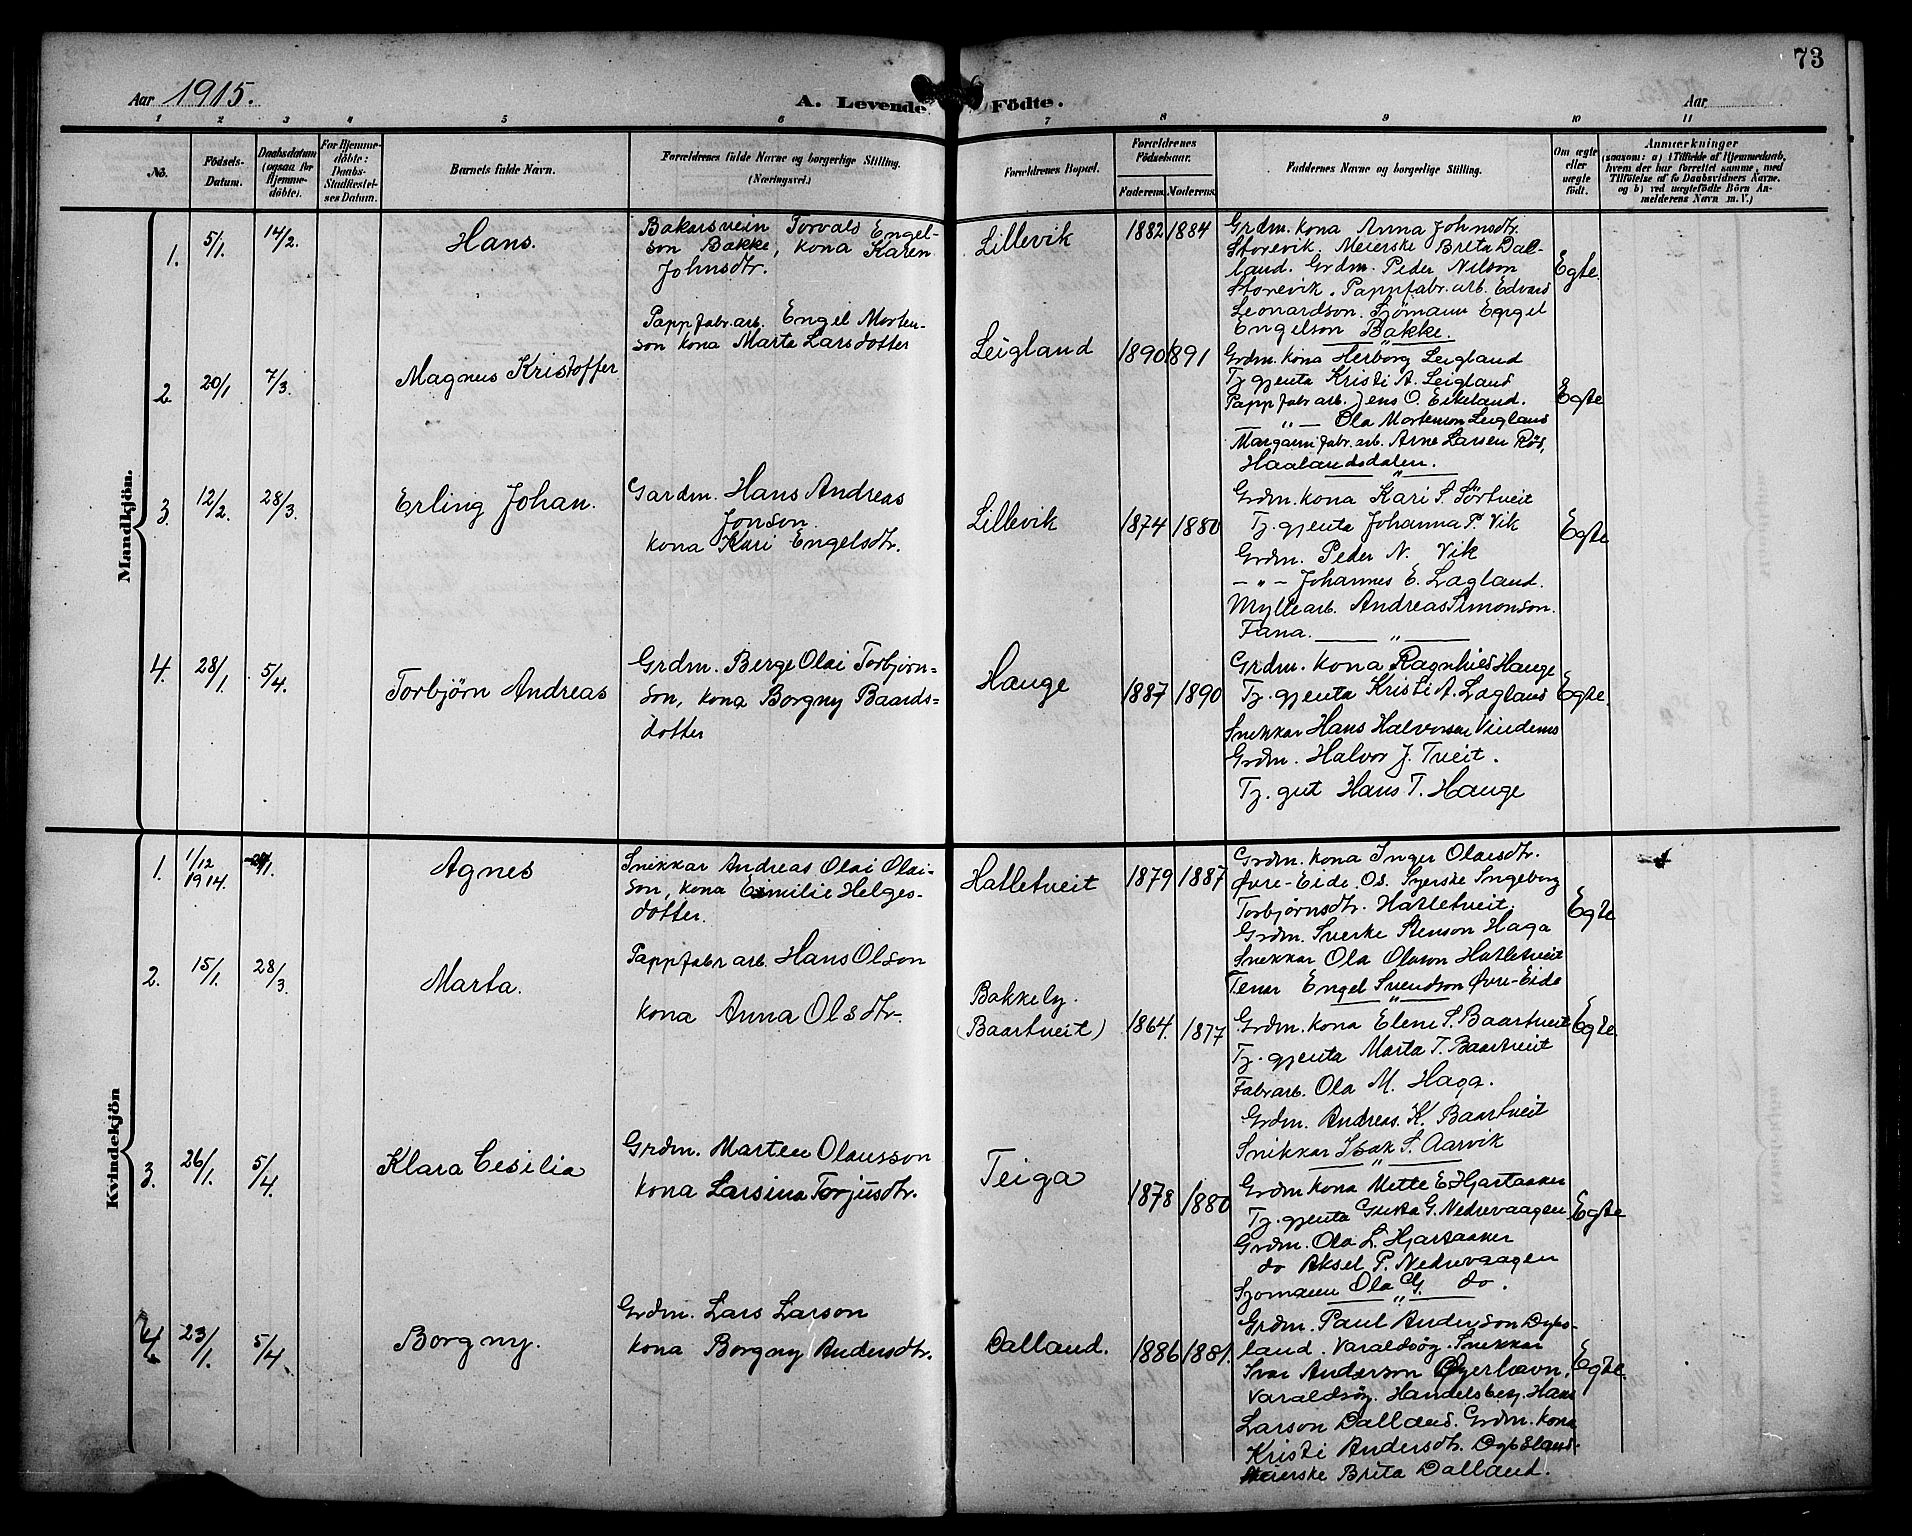 73
Aar 1915.
A. Levende Födte.
Aar
1 2 3 4 5 6 7 8 9 10 11
No.
Födsels-
Datum.
Daabsdatum
(ogsaa for
Hjemme-
döbte).
For Hjemme-
döbte:
Daabs-
Stadfæstel-
ses Datum.
Barnets fulde Navn.
Forældrenes fulde Navne og borgerlige Stilling.
(Næringsvei.)
Forældrenes Bopæl.
Forældrenes
Födselsaar.
Faderens. Moderens.
Faddernes Navne og borgerlige Stilling.
Om ægte
eller
uægte
födt.
Anmærkninger
(saasom: a) i Tilfælde af Hjemmedaab,
hvem der har forrettet samme, med
Tilföielse af to Daabsvidners Navne,
og b) ved uægtefödte Börn An-
melderens Navn m. V.)
Mandkjön.
1. 5/1. 14/2. Hans.
Bakarsvein Torvald Engel-
son Bakke, kona Karen
Johnsdtr.
Lillevik 1882 1884
Grdm. kona Anna Johnsdtr.
Storevik. Meierske Brita Dal-
land. Grdm. Peder Nilson
Storevik. Pappfabr. arb. Edvard
Leonardson. Sjömann Engel
Engelson Bakke.
Egte.
2 20/1. 7/3. Magnus Kristoffer
Pappfabr. arb. Engel Morten-
son kona Marta Larsdotter
Leigland 1890 1891
Grdm. kona Herborg Leigland
Tj. gjenta Kristi A. Leigland
Pappfabr arb. Jens O. Eikeland.
— " — Ola Mortenson Leigland
Margarinfabr. arb. Arne Larsen Röd,
Haalandsdalen.
Egte
3. 12/2. 28/3. Erling Johan.
Gardm. Hans Andreas
Jonson.
kona Kari Engelsdtr.
Lillevik 1874 1880
Grdm. kona Kari S. Sörtveit
Tj. gjenta Johanna P. Vik
Grdm. Peder N. Vik
— " — Johannes E. Lagland.
Myllearb. Andreas Simonson.
Fana.
Egte
4. 28/1. 5/4. Torbjörn Andreas
Grdm. Berge Olai Torbjörn-
son, kona Borgny Baards-
dotter
Hauge 1887 1890
Grdm. kona Ragnhild Hauge
Tj. gjenta Kristi A. Lagland
Snekkar Hans Halvorsen Vindenes
Grdm. Halvor J. Tveit.
Tj. gut Hans T. Hauge
Egte.
Kvindekjön
1. 1/12 1914. Agnes
Snikkar Andreas Olai Olai-
son, kona Emilie Helges-
dotter.
Hatletveit 1879 1887
Grdm. kona Inger Olaesdtr.
Øvre-Eide. Os. Syerske Ingeborg
Torbjörnsdtr. Hatletveit.
Grdm. Sverke Stenson Haga
Snekkar Ola Olason Hatletveit
Tenar Engel Svendson Øvre-Eide
Egte
2. 15/1. 28/3. Marta.
Pappfabr arb. Hans Olson
kona Anna Olsdtr.
Bakkely.
(Baartveit) 1864. 1877
Grdm. kona Elene S. Baartveit
Tj. gjenta Marta T. Baartveit
Fabrarb. Ola M. Haga.
Grdm. Andreas. K. Baartveit
Snikkar Isak S. Aarvik
Egte
3. 26/1. 5/4. Klara Cesilia
Grdm. Marten Olausson
kona Larsina Torjusdtr.
Teiga 1878 1880
Grdm. kona Mette E Hjartaaker
Tj. gjenta Gusta G. Nedrevaagen
Grdm. Ola L. Hjartaaker
do Aksel P. Nedrevaagen
Sjomann Ola G. do.
Egte
4. 23/1. 5/4. Borgny.
Grdm. Lars Larson
kona Borgny Andersdtr.
Dalland. 1886 1881.
Grdm. Paul Anderson Dybs-
land. Varaldsöy. Snikkar
Ivar Anderson Øyerhavn,
Varaldsöy. Handelsbetj. Hans
Larson Dalland. Grdm. kona
Kristi Andersdtr. Dybsland.
Meierske Brita Dalland.
Egte.